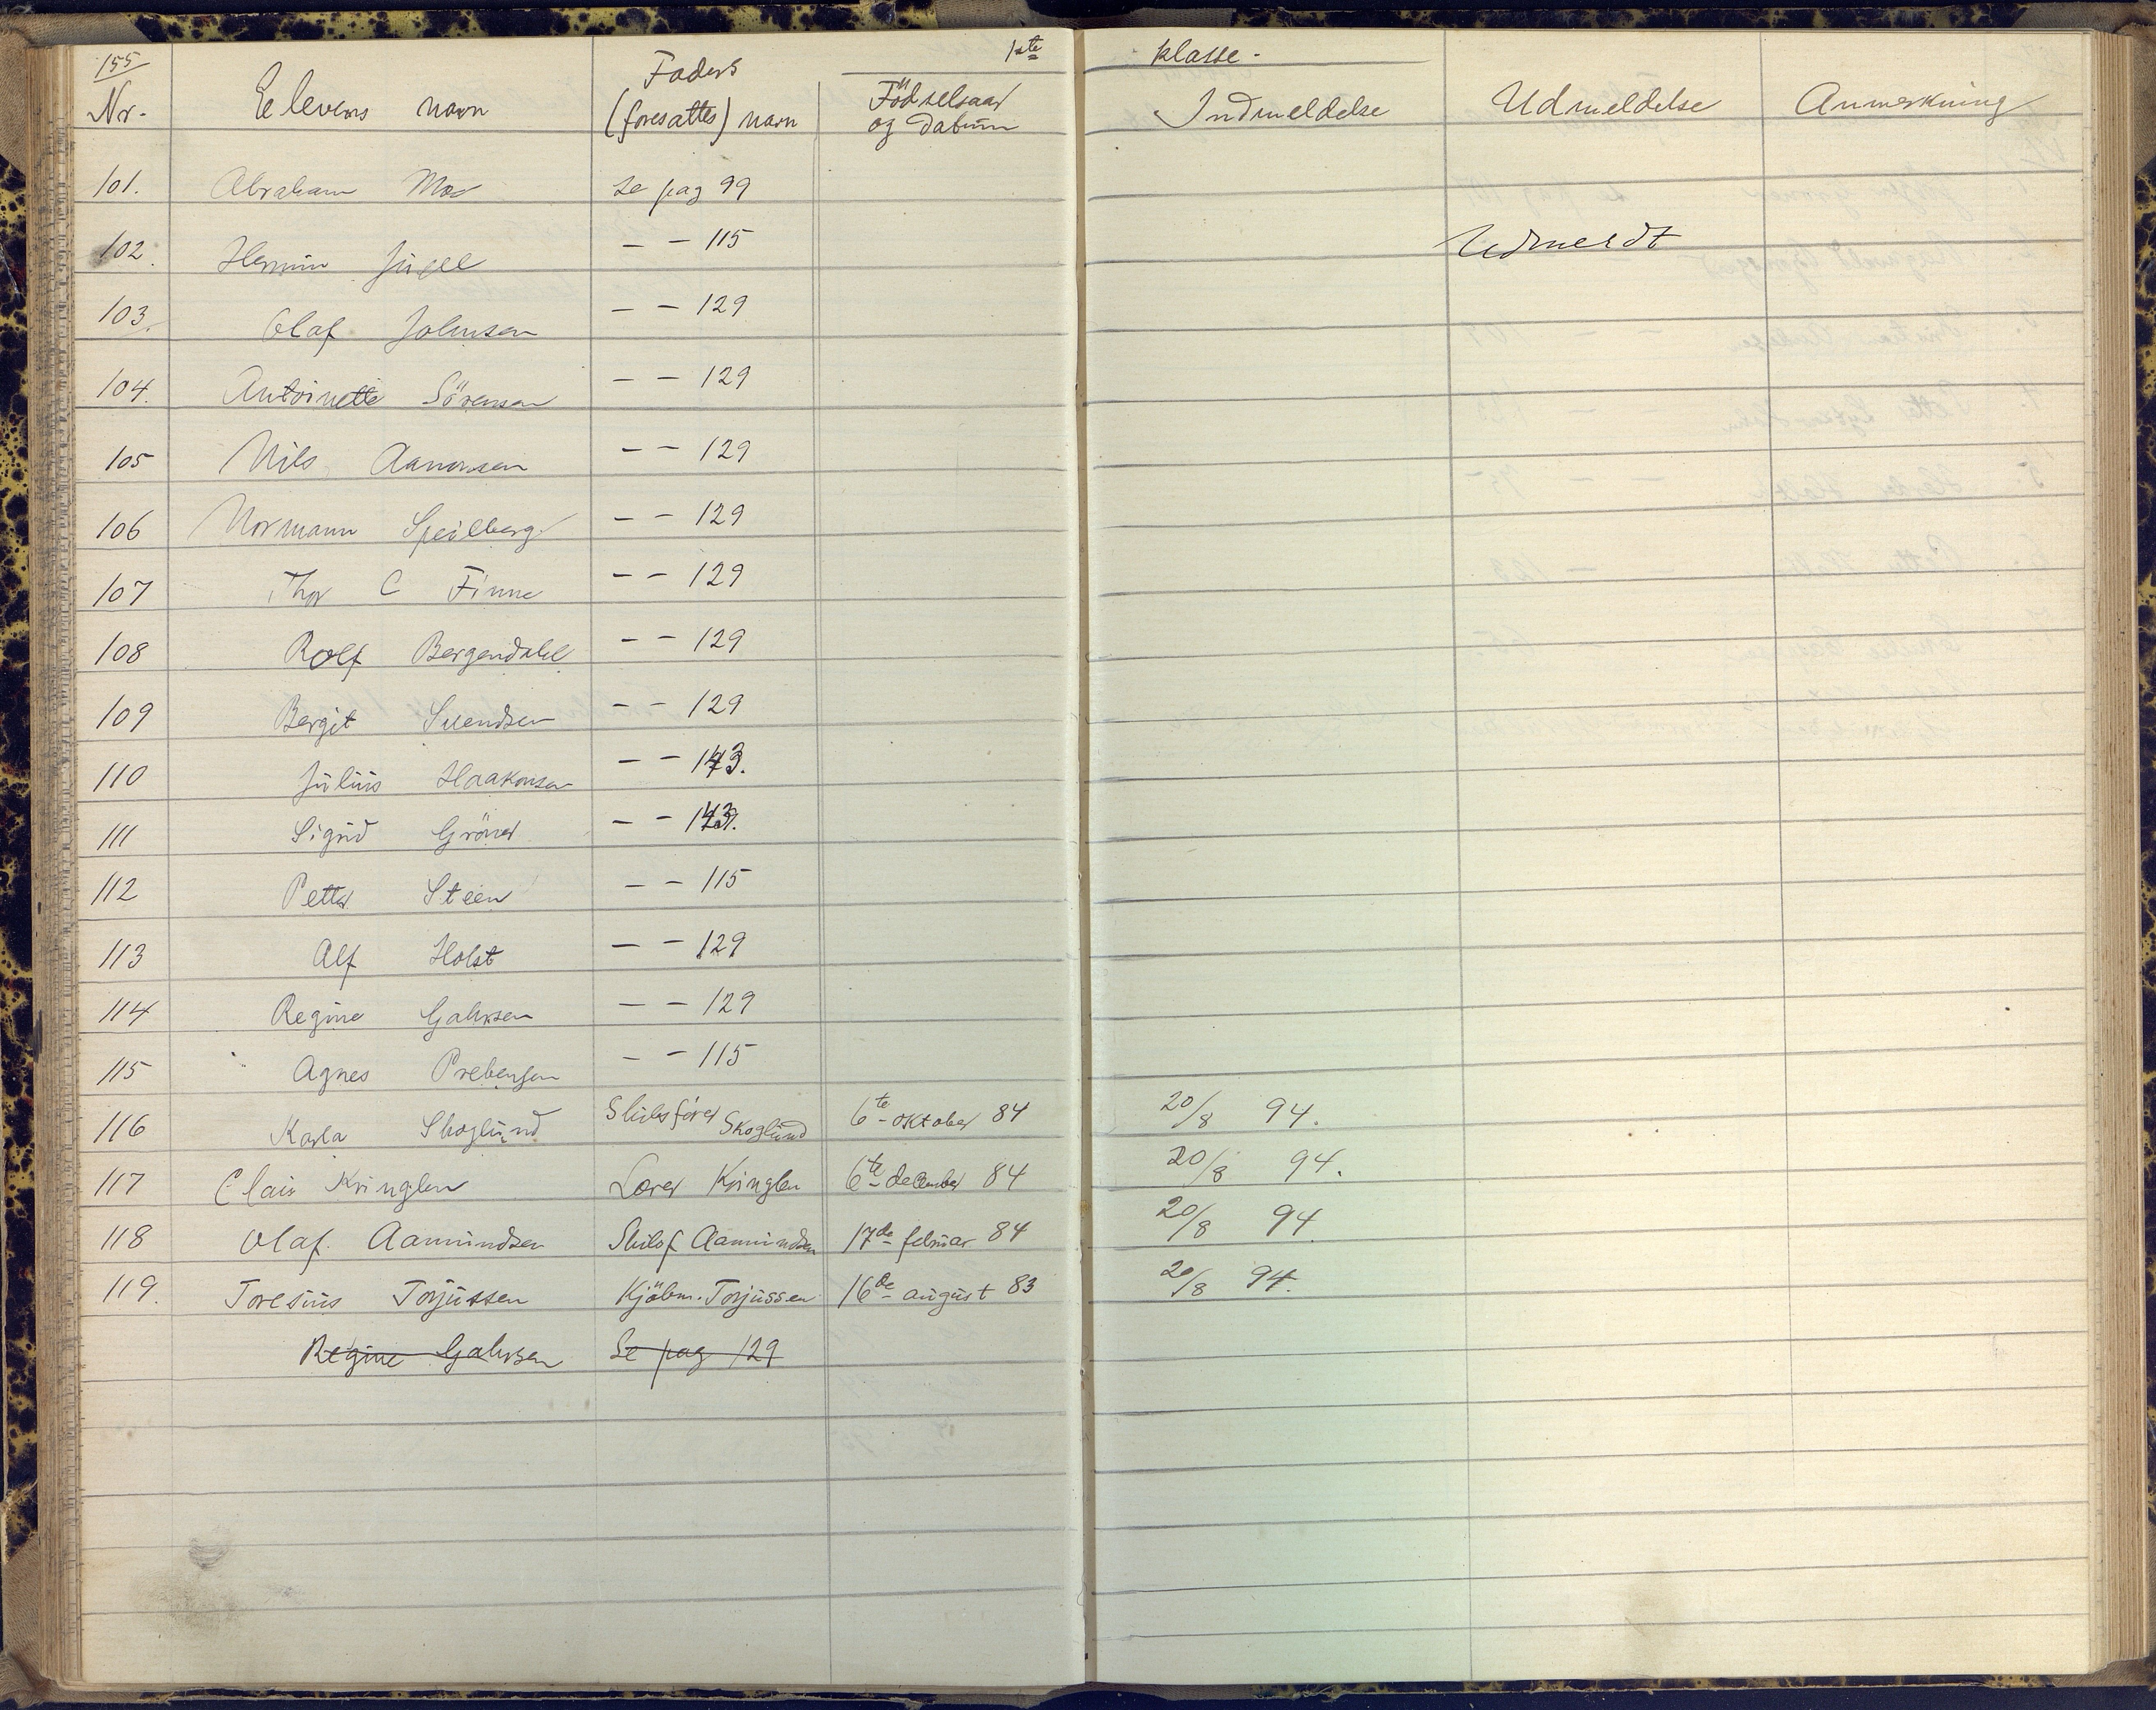 155 1ste klasse -
Nr. Elevens navn Faders (foresattes) navn Födselsaar og Datum Indmeldelse Udmeldelse Anmerkning
101. Abraham Moe se pag 99
102. Hermin Jügel — — 115 Udmeldt
103. Olaf Johnsen — — 129
104. Antoinette Sörensen — — 129
105 Nils Aanonsen — — 129
106 Normann Speilberg — — 129
107 Thor C Finne — — 129
108 Rolf Bergendahl — — 129
109 Bergit Svendsen — — 129
110 Julius Haakonsen — — 143.
111 Sigrid Gröner — — 143.
112 Petter Steen — — 115
113 Alf Holst — — 129
114 Regine Gahrsen — — 129
115 Agnes Prebensen — — 115
116 Karla Skoglund Skibsförer Skoglund 6te oktober 84 20/8 94.
117 Clais Kringlen Lærer Kringlen 6te december 84 20/8 94.
118 Olaf Aamundsen Skibsf Aamundsen 17de februar 84 20/8 94.
119. Toresius Torjussen Kjöbm. Torjussen 16de august 83 20/8 94.
Regine Gahrsen Se pag 129